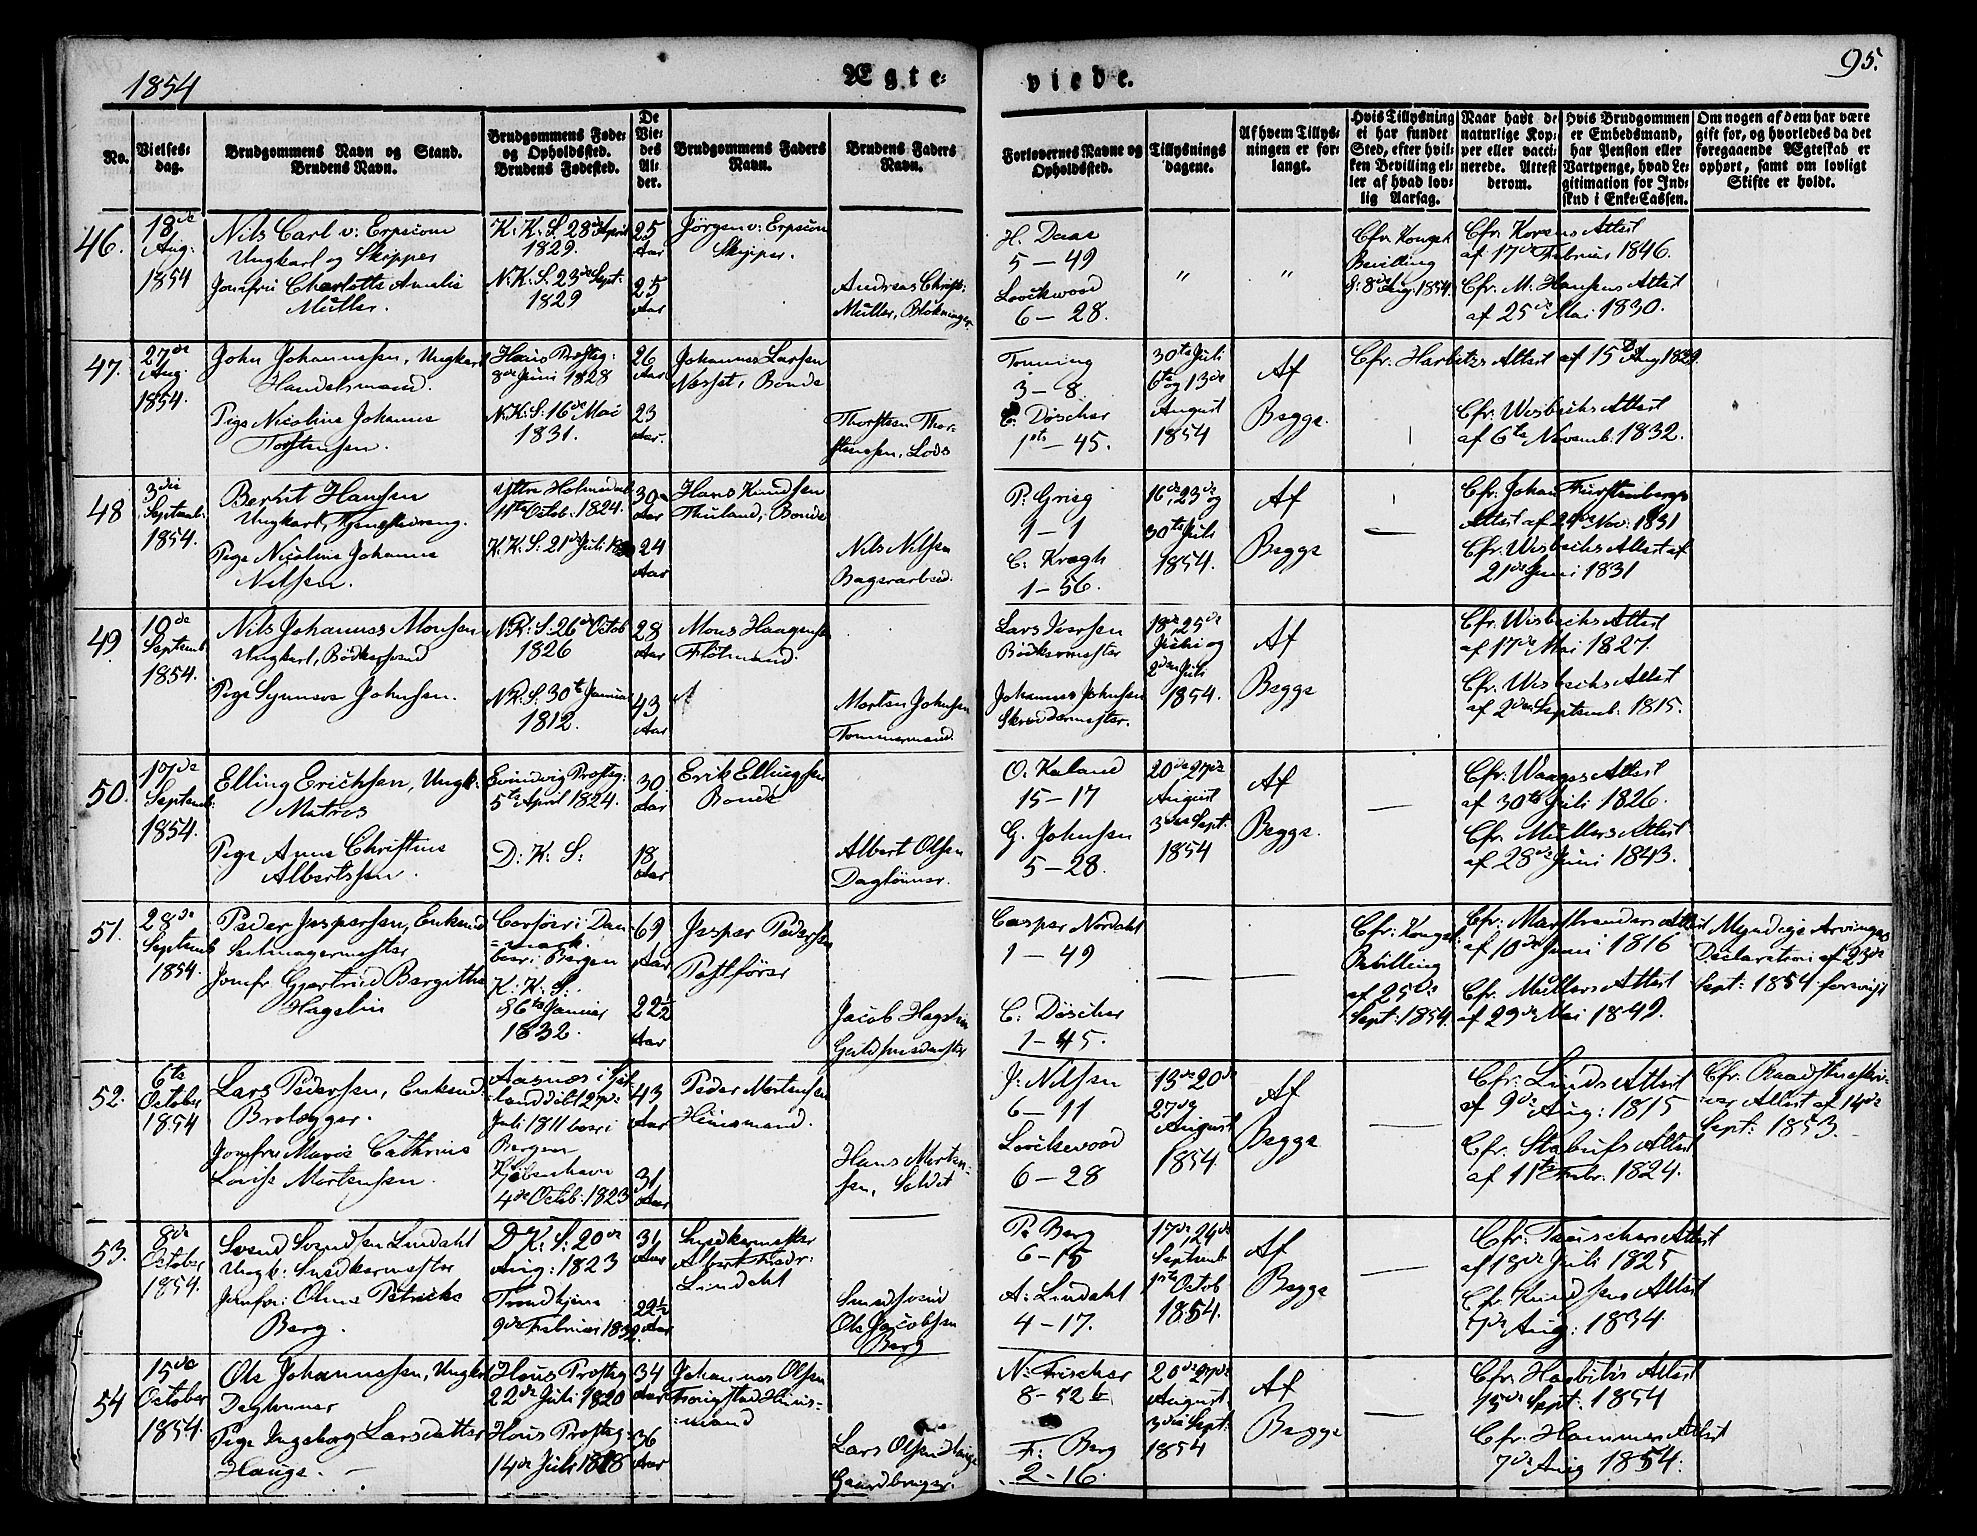 1854
Ægte-
viede.
95.
No.
Vielses-
dag.
Brudgommens Navn og Stand.
Brudens Navn.
Brudgommens Føde-
og Opholdssted.
Brudens Fødested.
De
Vie-
des
Al-
der.
Brudgommens Faders
Navn.
Brudens Faders
Navn.
Forlovernes Navne og
Opholdssted.
Tillysnings
dagene.
Af hvem Tillys-
ningen er for-
langt.
Hvis Tillysning
ei har fundet
Sted, efter hvil-
ken Bevilling el-
ler af hvad lov-
lig Aarsag.
Naar havt de
naturlige Kop-
per eller vacci-
nerede. Attest
derom.
Hvis Brudgommen
er Embedsmand,
har Pension eller
Vartpenge, hvad Le-
gitimation for Ind-
skud i Enke-Cassen.
Om nogen af dem har være
gift før, og hvorledes da det
foregaaende Ægteskab er
ophørt, samt om lovligt
Skifte er holdt.
46.
18de
Aug:
1854
Nils Carl v: Erpecom
Ungkarl og Skipper
Jomfru Charlotte Amalie
Müller.
K. K. S. 28de April
1829.
N. K. S. 23de Sept:
1829
25
Aar
25
Aar
Jørgen v: Erpecom
Skipper.
Andreas Christ:
Müller,
H. Daae
5 - 49
6 - 28.
"
"
Cfr. Kongel:
Bevilling
8de Aug: 1854.
Cfr. Korens Attest
af 17de Februar 1846.
Cfr. M. Hansens Attest
af 25de Mai 1830.
47.
27de
Aug.
1854.
John Johannessen, Ungkarl
Handelsmand.
Pige Nicoline Johanne
Torstensen.
Haus Præsteg:
8de Juni 1828
N. K. S: 16de Mai
1831.
26
Aar
23
Aar.
Johannes Larsen
Nesset, Bonde
Thorsten Thor-
stensen, Lods
Tonning
3 - 8.
C. Döscher
1ste - 45.
30te Juli
6te og 13de
August
1854
Af
Begge.
Cfr. Harbitz Attest af 15de Aug 1829.
Cfr. Wisbechs Attest
af 6te Novemb. 1832.
48
3die
Septemb.
1854.
Berhit Hansen
Ungkarl,
Pige Nicoline Johanne
Nilsen.
Yttre Holmedal
11te Octob. 1824.
K. K. S. 21de Juli
30
Aar
24
Aar
Hans Knudsen
Thuland, Bonde
Nils Nilsen
P. Grieg
1 - 1
C. Kragh
1 - 56.
16de, 23de og
30te Juli
1854.
Af
Begge
Cfr. Johan Fürstenbergs
Attest af 24de Nov: 1831
Cfr: Wisbechs Attest af
21de Juni 1831
49.
10de
Septemb
1854.
Nils Johannes Monsen
Ungkarl, Bødkersvend
Pige Synneve Johnsen.
N. K. S. 26de Octob
1826
N. K. S. 30te Januar
1812.
28
Aar
43
Aar
Mons Haagensen
Flötmand.
Morten Johnsen
Tømmermand.
Lars Iversen
Bødkermester
Johannes Johnsen
Skræddermester.
18de, 25de
Juni og
2den Juli
1854.
Af
Begge
Cfr. Wisbechs Attest
af 17de Mai 1827.
Cfr. Wisbechs Attest
af 2den Septemb. 1815.
50.
17de
Septemb.
1854.
Elling Erichsen, Ungk:
Matros
Pige Anne Christine
Albertsen.
Evindvig Præsteg:
5te April 1824.
D: K. S:
30.
Aar
18
Aar
Erik Ellingsen
Bonde
Albert Olsen
Daglønner.
O. Kaland
15 - 17
G. Johnsen
5 - 28.
20de 27de
August
3die Sept.
1854
Af
Begge.
Cfr. Waages Attest
af 30te Juli 1826.
Cfr. Müllers Attest
af 28de Juni 1843.
51.
28de
Septemb
1854.
Peder Jespersen, Enkemd
Seilmagermester
Jomfr Gjertrud Bergithe
Hagelin
Corsöer i Dan-
=mark.
boer i Bergen
K. K. S:
26te Januar
1832.
69
Aar
22½
Aar
Jesper Pedersen
Postfører
Jacob Hagelin
Casper Nordahl
1 - 49
C: Döscher
1 - 45.
Cfr: Kongel:
Bevilling
af 25de
Sept: 1854.
Cfr: Marstranders Attest
af 10de Juni 1816
Cfr. Müllers Attest
af 29de Mai 1849.
Myndige Arvingers
Declaration af 23de
Sept: 1854 foreviist
52.
6te
October
1854
Lars Pedersen, Enkemd
Brolægger.
Jomfru Marie Cathrine
Lovise Mortensen.
Aasnæs i Sjæl-
land döbt 27de
Juli 1811 boer i
Bergen
Kjøbenhavn
4de Octob. 1823
43
Aar
31
Aar
Peder Mortensen
Huusmand.
Hans Morten-
sen, Soldat
J: Nilsen
6 - 11
6 - 28
13de 20de
27de
August
1854.
Af
Begge
Cfr: Linds Attest
af 9de Aug: 1815
Cfr. Stabufs Attest
af 11te Febr. 1824.
Cfr. Raadstueskri-
ver Attest af 14de
Sept: 1853.
53.
8de
October
1854.
Svend Svendsen Lindahl
Ungk: Snedkermester
Jomfr: Oline Petrikke
Berg.
D. K. S. 20de
Aug: 1823
Trondhjem
9de Februar 1832
31
Aar
22½
Aar
Snedkermester
Albert Fredr:
Lindahl
Smedsvend
Ole Jacobsen
Berg
P. Berg
6 - 15
A: Lindahl
4 - 17.
17de, 24de
Septemb
1ste Octob
1854.
Af
Begge
Cfr. Tauschers Attest
af 18de Juli 1825
Cfr. Knudsens Attest
7de Aug: 1834.
54
15de
October
1854.
Ole Johannessen, Ungkr
Dagløner
Pige Ingeborg Larsdatter
Hauge.
Hous Præsteg
22de Juli 1820
Hous Præsteg:
14de Juli 1818
34
Aar
36
Aar
Johannes Olsen
Huus-
=mand
Lars Olsen Hauge
Gaardbruger.
N. Fischer
8 - 52 b
F: Berg
2 - 16.
20de 27de
August
3die Sept:
1854
Af
Begge
Cfr. Harbitz Attest
15de Sept: 1854
Cfr. Hammer Attest
7de Aug 1854.